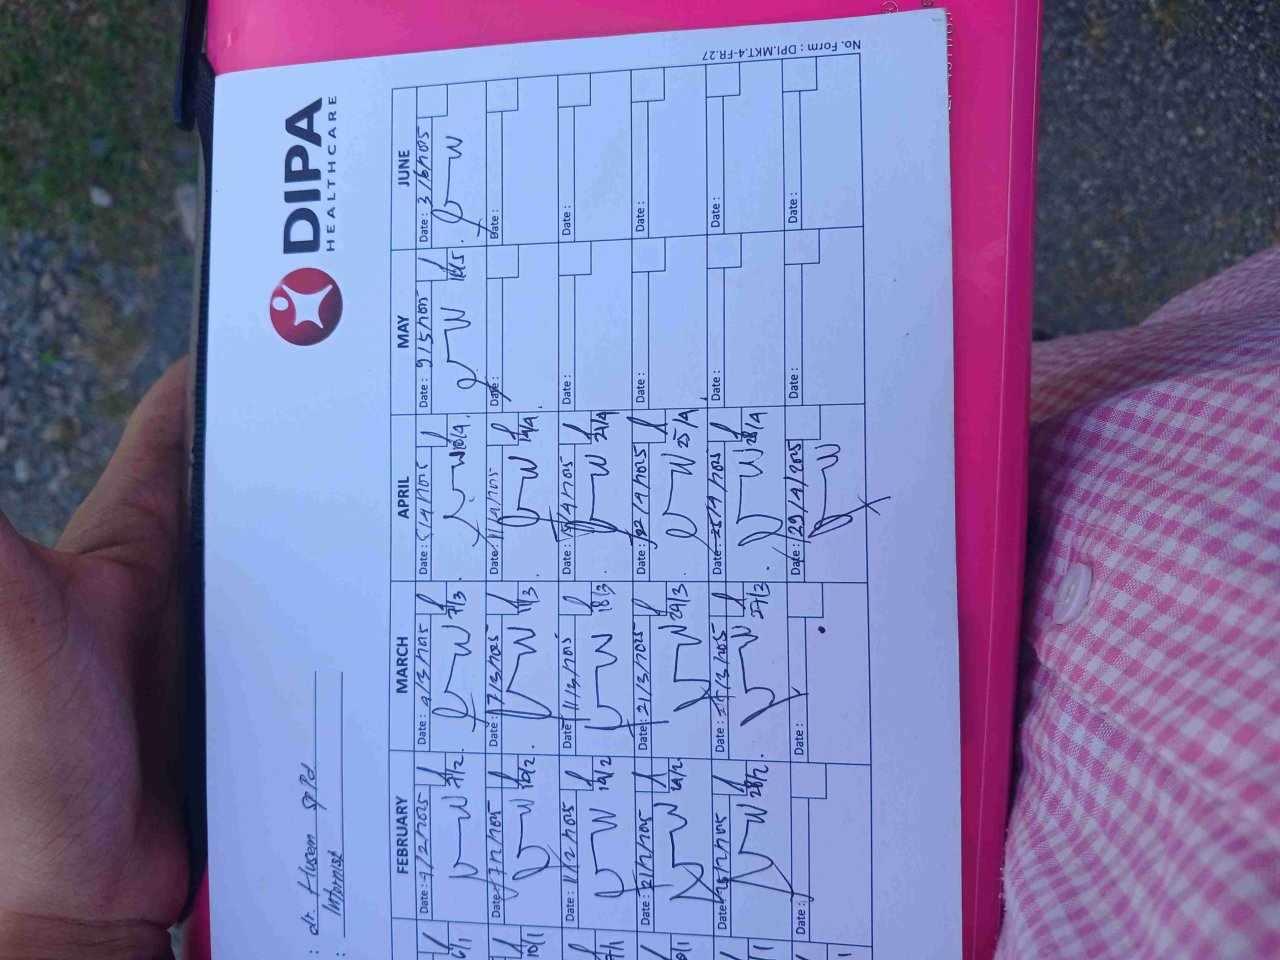 DIPA
HEALTHCARE
No. Form : DPI.MKT.4-FR.27
: dr. Husen SpPd
: Internist
FEBRUARY MARCH APRIL MAY JUNE
Date : 4/2/2025 Date : 4/3/2025 Date : Date : 9/5/2025 Date : 3/6/2025
6/1 7/2. 7/3. 10/4. 16/5.
Date : 7/2/2025 Date : 7/3/2025 Date : 11/4/2025 Date : Date :
10/1 10/2. 11/3. 14/4.
Date : 11/2/2025 Date : 11/3/2025 Date : 15/4/2025 Date : Date :
7/1 14/2 18/3. 21/4.
Date : 21/2/2025 Date : 21/3/2025 Date : 22/4/2025 Date : Date :
0/1 24/3. 25/4.
Date : 25/2/2025 Date : 25/3/2025 Date : 25/4/2025 Date : Date :
/1 28/2. 27/3. 28/4
Date : Date : Date : 29/4/2025 Date : Date :